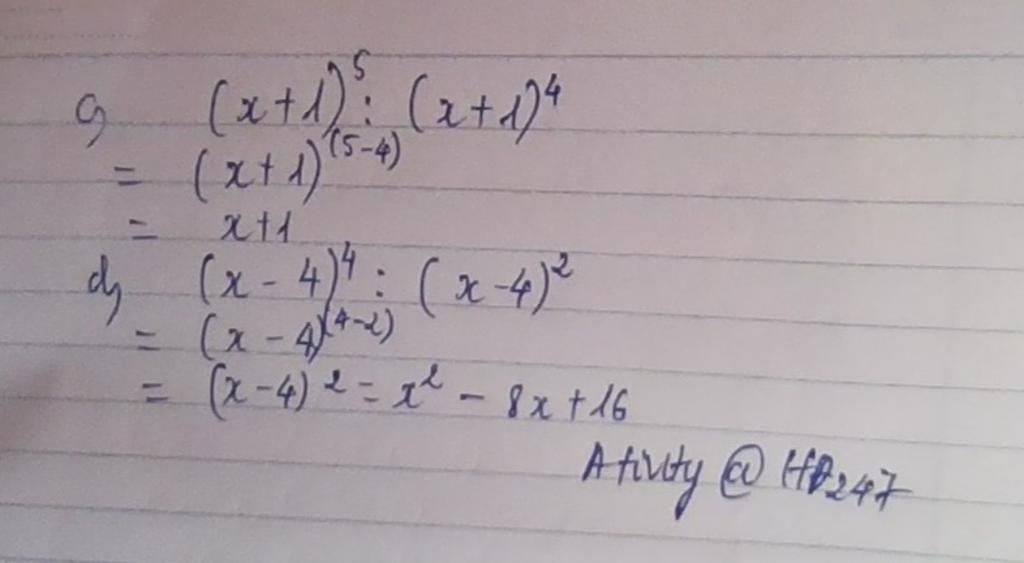 c, (x+1)⁵ : (x+1)⁴
= (x+1)⁽⁵⁻⁴⁾
= x+1
d, (x - 4)⁴ : (x - 4)²
= (x - 4)⁽⁴⁻²⁾
= (x - 4)² = x² - 8x + 16
Ativity @ HD247